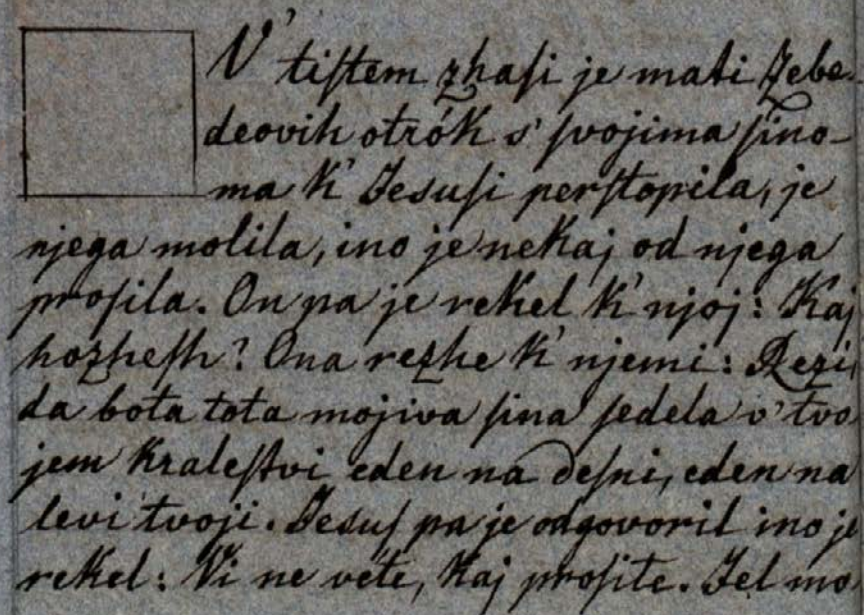 V' tiſtem zhaſi je mati Zebe-
deovih otrók s' ſvojima ſino-
ma k' Jesuſi perſtopila, je
njega molila, ino je nekaj od njega
proſila. On pa je rekel k' njoj: Kaj
hozheſh? Ona rezhe k' njemi: Rezi,
da bota tota mojiva ſina ſedela v' tvo
jem kraleſtvi eden na deſni, eden na
levi tvoji. Jesuſ pa je odgovoril ino je
rekel: Vi ne véte, kaj proſite. Jel mo